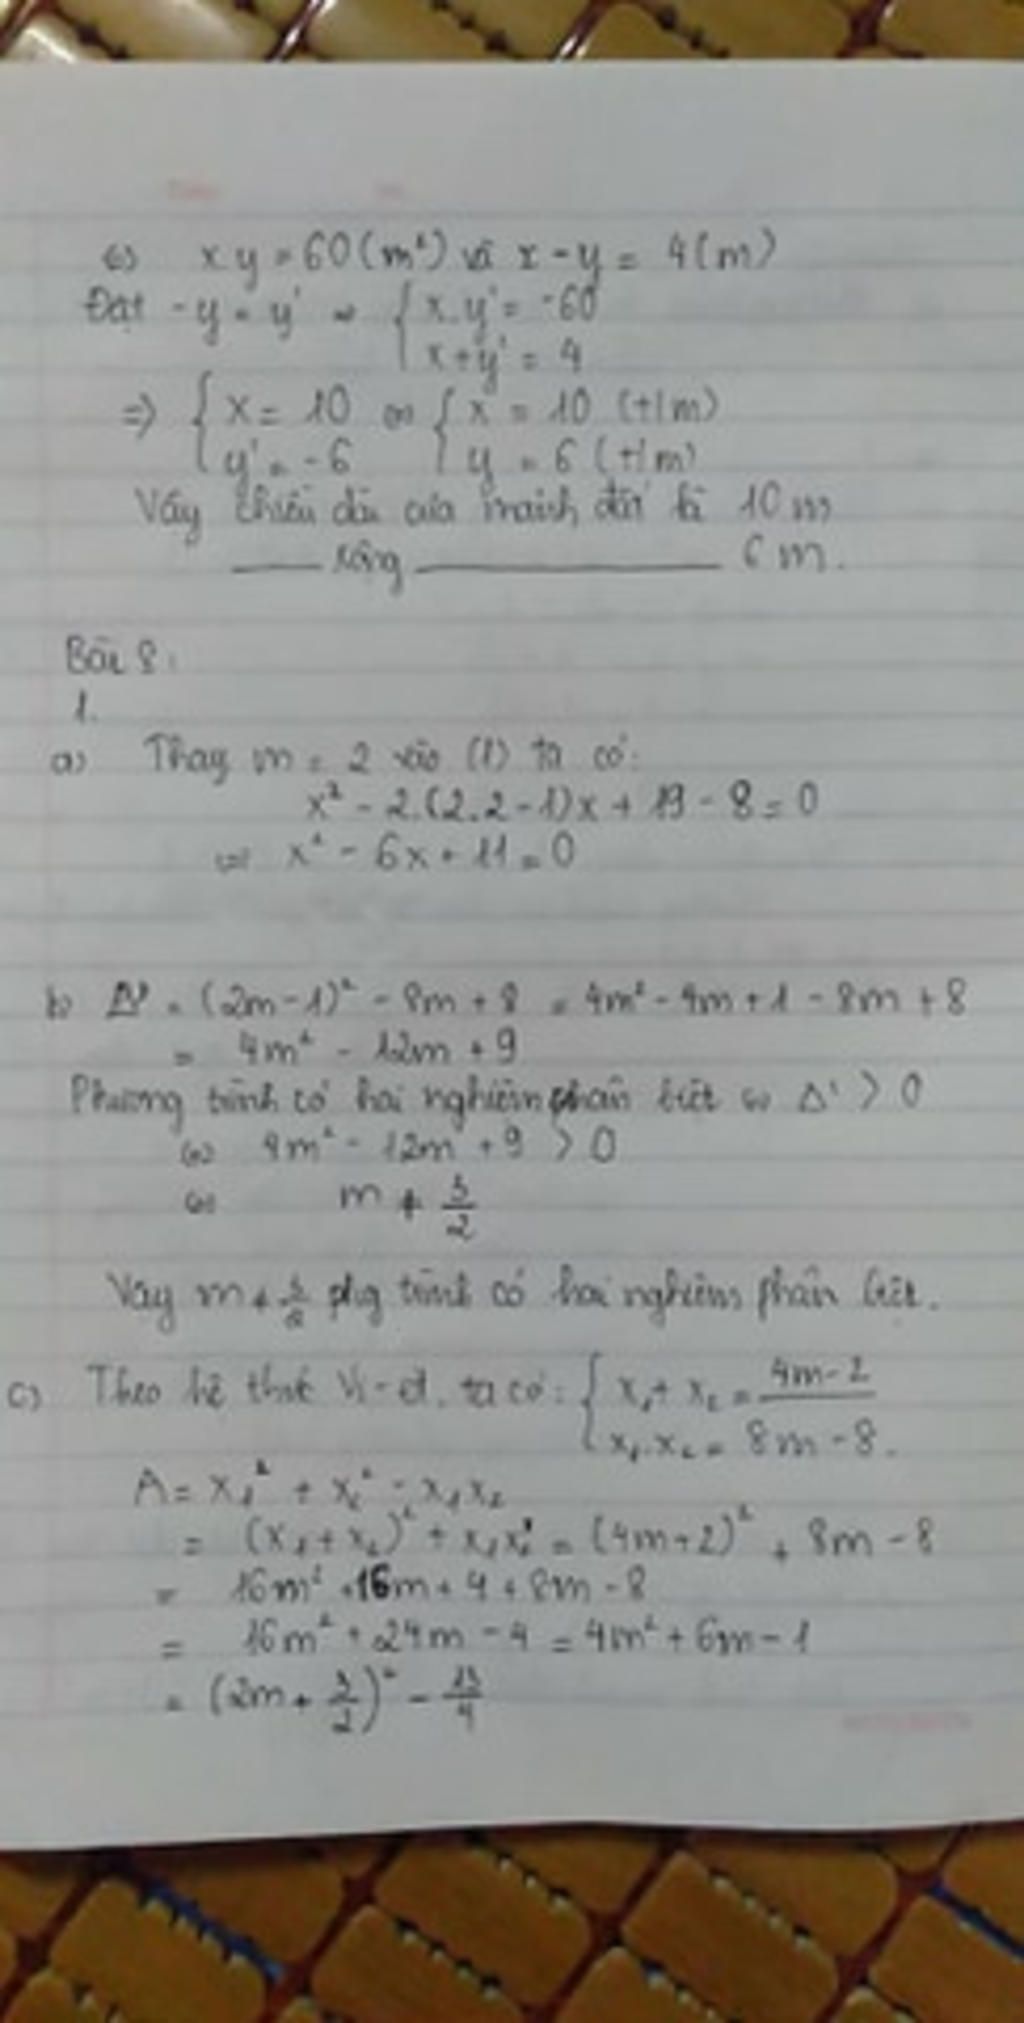 ⇔ xy = 60 (m²) và x - y = 4 (m)
Đặt -y = y' ⇒ { x.y' = -60
x + y' = 4
⇒ { x = 10 ⇔ { x = 10 (t/m)
y' = -6 y = 6 (t/m)
Vậy chiều dài của mảnh đất là 10 m
rộng 6 m.
Bài 8:
1.
a) Thay m = 2 vào (1) ta có:
x² - 2.(2.2-1)x + 19 - 8 = 0
⇔ x² - 6x + 11 = 0
b) Δ' = (2m-1)² - 8m + 8 = 4m² - 4m + 1 - 8m + 8
= 4m² - 12m + 9
Phương trình có hai nghiệm phân biệt ⇔ Δ' > 0
⇔ 4m² - 12m + 9 > 0
⇔ m ≠ 3/2
Vậy m ≠ 3/2 ptrg trình có hai nghiệm phân biệt.
c) Theo hệ thức Vi-et, ta có: { x₁ + x₂ = 4m-2
x₁.x₂ = 8m-8.
A = x₁² + x₂² - x₁x₂
= (x₁+x₂)² + x₁x₂ = (4m+2)² + 8m - 8
= 16m² + 16m + 4 + 8m - 8
= 16m² + 24m - 4 = 4m² + 6m - 1
= (2m + 3/2)² - 13/4